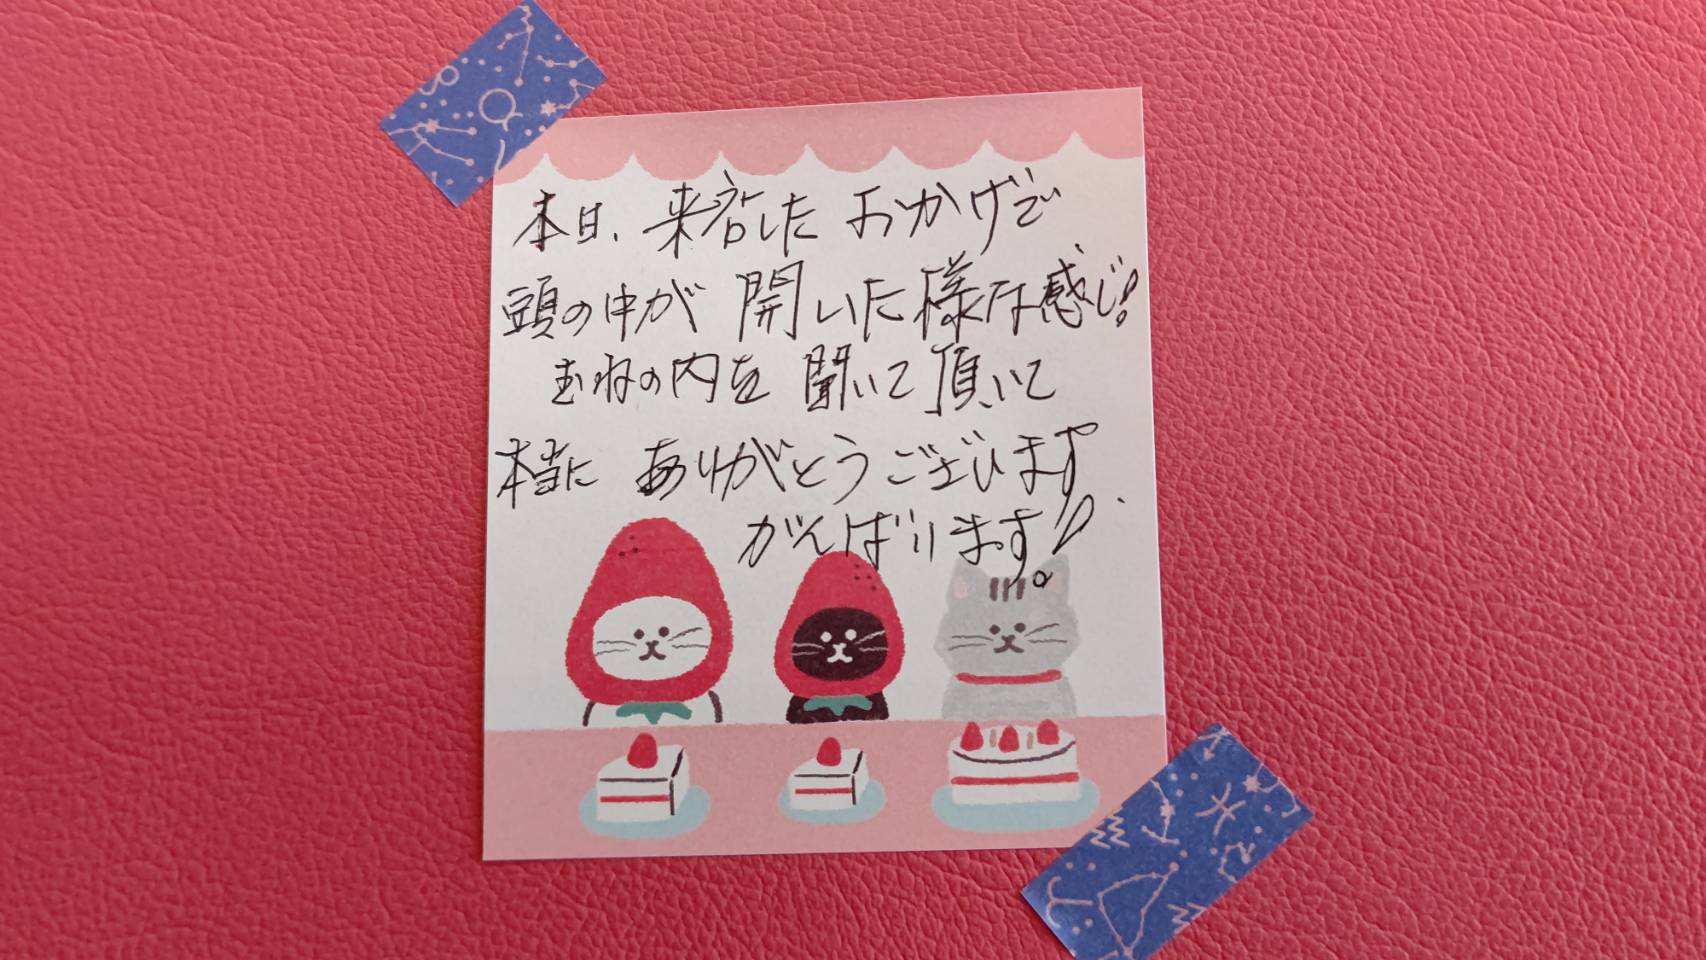 本日、来館したおかげで
頭の中が開いた様な感じ!
むねの内を聞いて頂いて
本当にありがとうございます。
がんばります!。